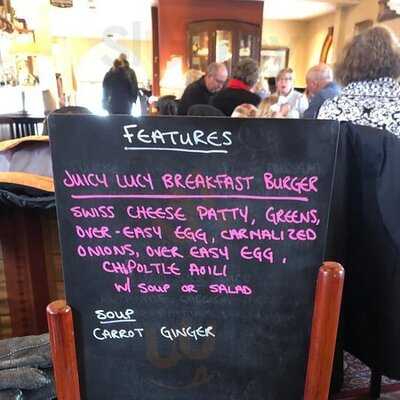 FEATURES
JUICY LUCY BREAKFAST BURGER
SWISS CHEESE PATTY, GREENS,
OVER-EASY EGG, CARNALIZED
ONIONS, OVER EASY EGG,
CHIPOLTLE AOILI
W/ SOUP OR SALAD
SOUP
CARROT GINGER